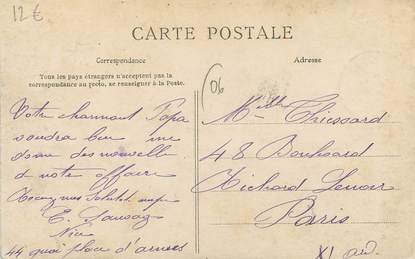 12€
CARTE POSTALE
Correspondance
Adresse
Tous les pays étrangers n'acceptent pas la
correspondance au recto, se renseigner à la Poste.
06
Votre charmant Papa
voudra bien me
des nouvelle
de notre affaire
Nice
44 quai place d'armes
Mlle Thiessard
48 Boulevard
Richard Lenoir
Paris
XI arr.